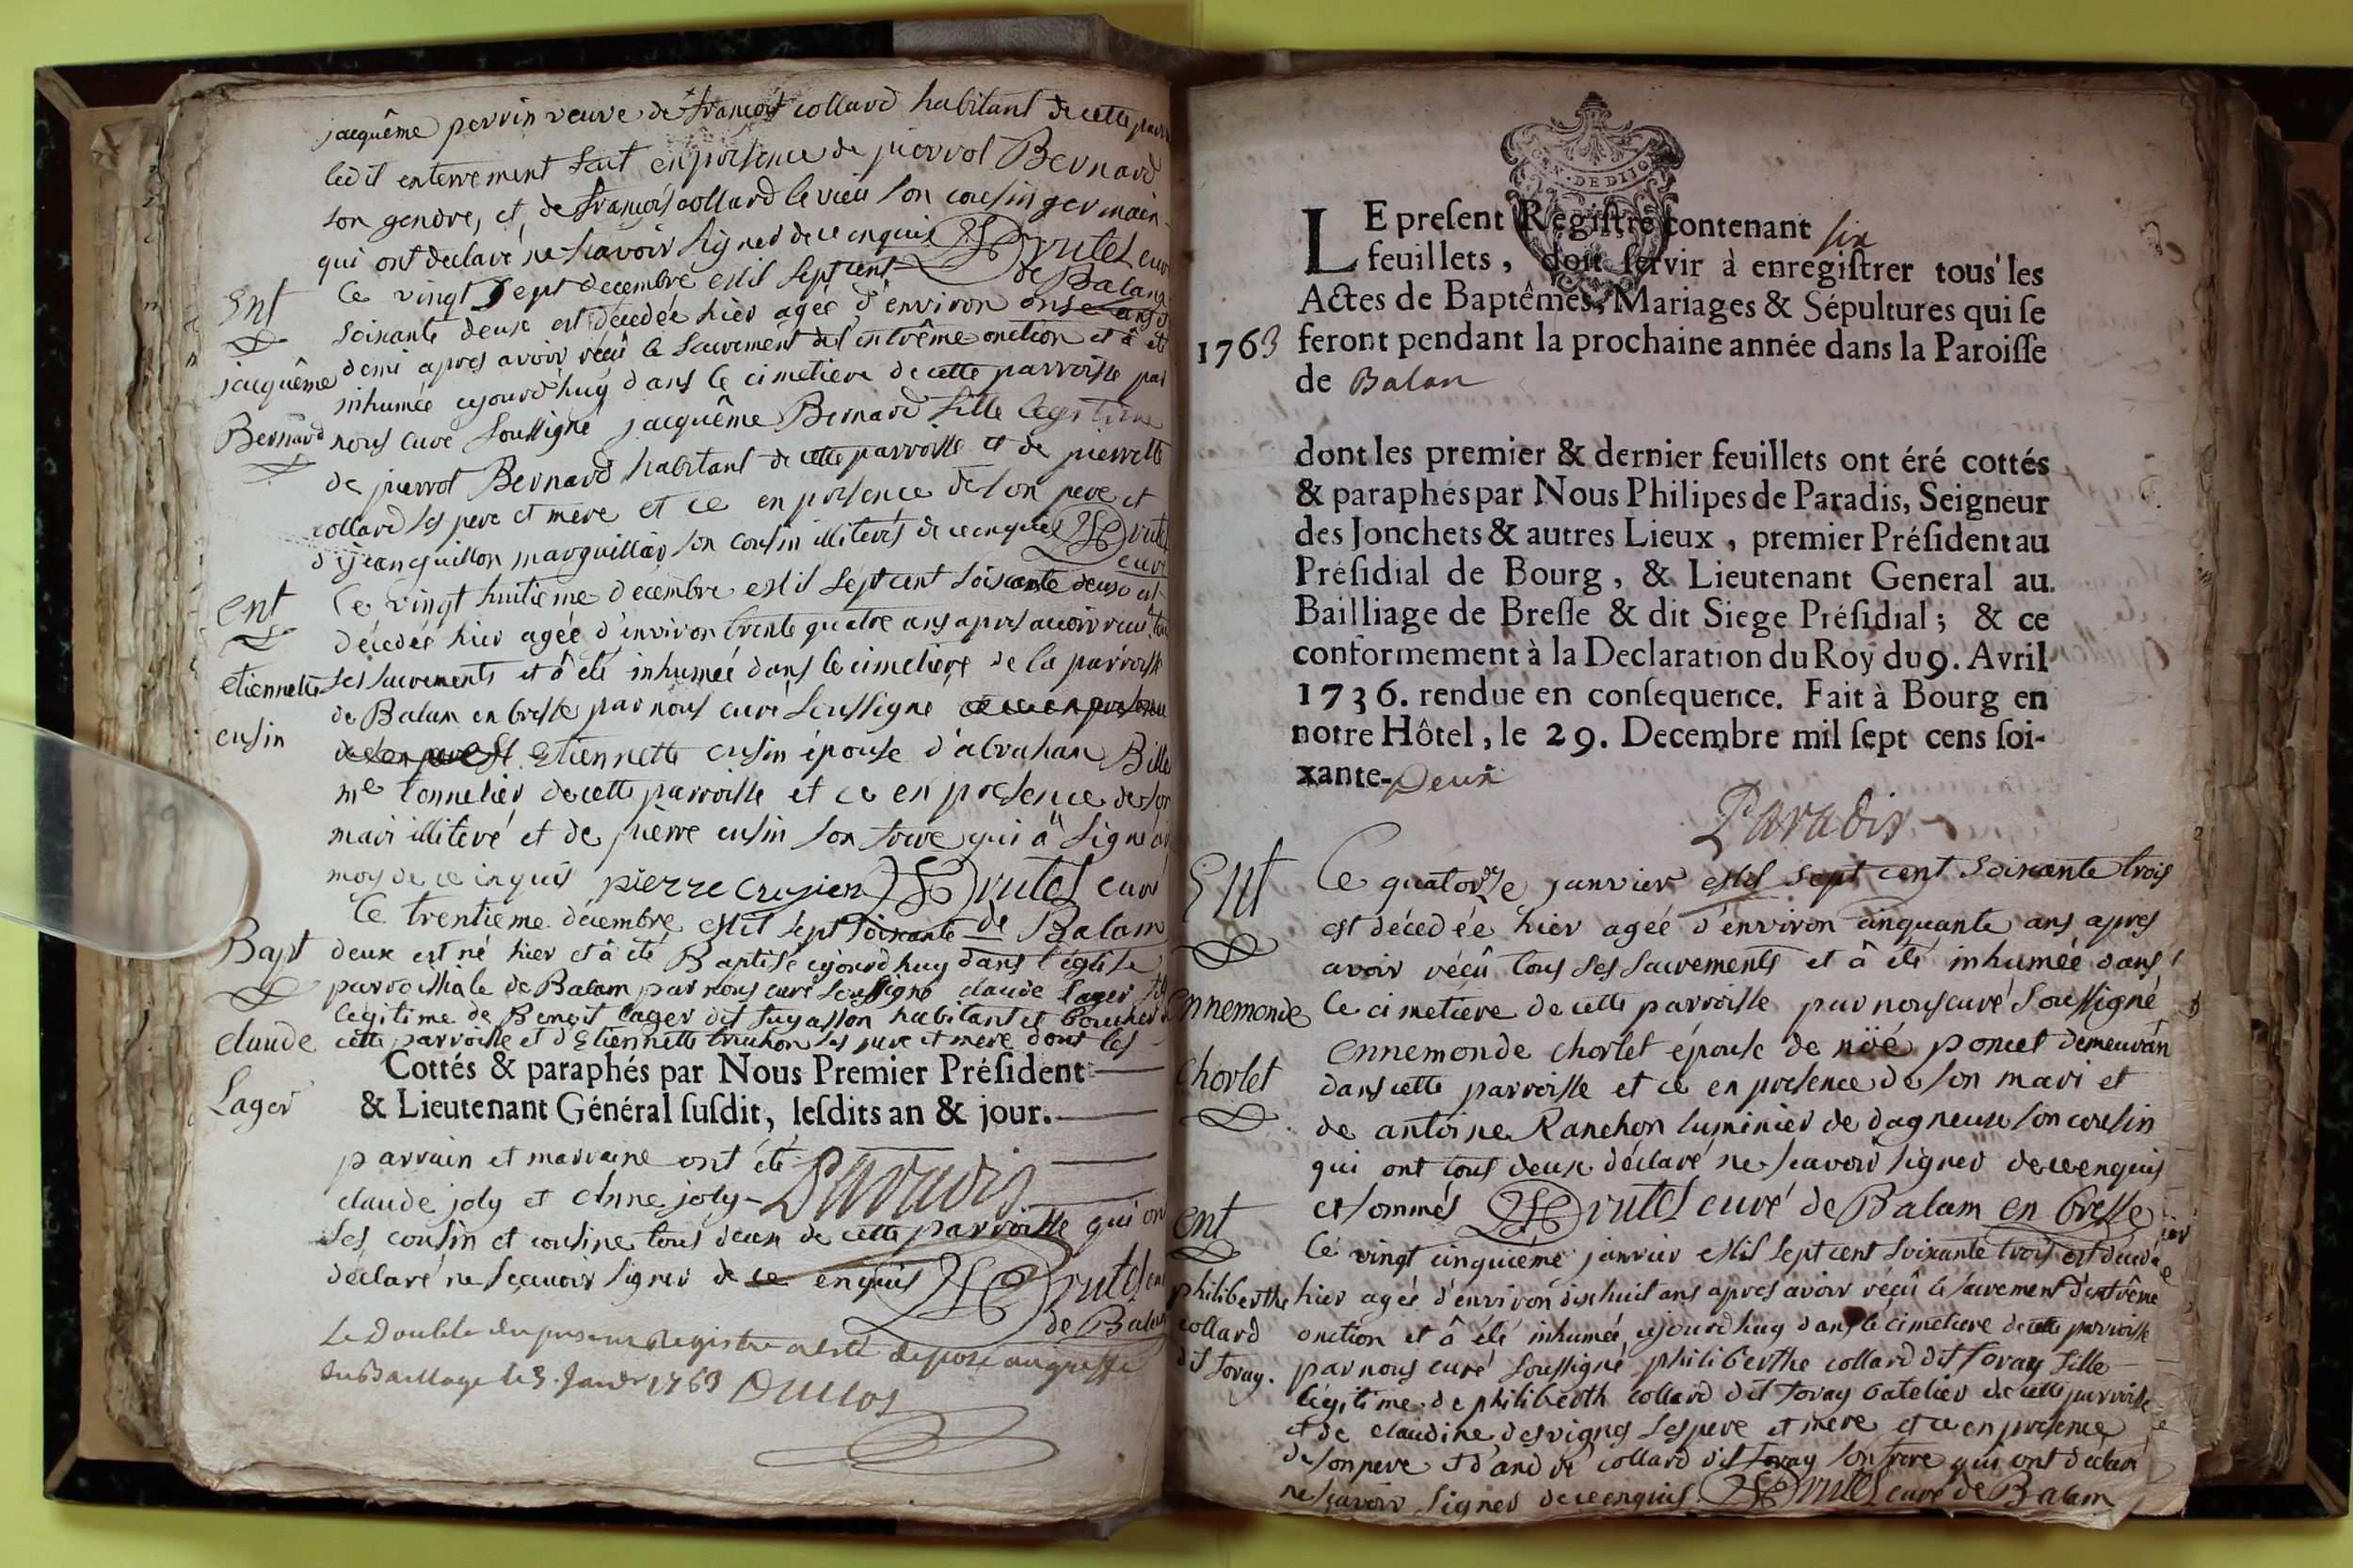 jacquême perrin veuve de françois collard habitant de cette parr
ledit enterrement fait en presence de pierrot Bernard
son gendre, et de françois collard le vieu son cousin germain
qui ont declaré ne scavoir signer de ce enquis Brutel curé
de Balan
Ent
Ce vingt sept decembre mil sept cent
soixante deux est décedée hier agée d'environ onse ans et
demi apres avoir reçû le sacrement de l'extrême onction et â été
jacquême
inhumée ajourdhuy dans le cimetiere de cette parroisse par
Bernard
nous curé soussigné jacquême Bernard fille legitime
de pierrot Bernard habitant de cette parroisse et de pierrette
collard ses pere et mere et ce en presence de son pere et
d'jean guillon marguillier son cousin illiterés de ce enquis Brutel
curé
ent
Ce vingt huitieme decembre mil sept cent soixante deux est
décedée hier agée d'environ trente quatre ans apres avoir recu tou
etiennette
ses sacrements et â été inhumée dans le cimetiere de la parroisse
de Balam en bresse par nous curé soussigné
cusin
Etiennette cusin épouse d'abraham Bille
me tonnelier de cette parroisse et ce en presence de son
mari illiteré et de pierre cusin son frere qui â signé av
moy de ce inquis pierre Cuzien Brutel curé
de Balam
Bapt
Ce trentieme décembre mil sept soixante
deux est né hier et â été Baptisé ajourdhuy dans l'église
parroissiale de Balam par nous curé soussigné claude Lager fils
legitime de Benoit Lager dit habitant et boucher de
claude
cette parroisse et d'Etiennette truchon ses pere et mere dont les
Cottés & paraphés par Nous Premier Président
Lager
& Lieutenant Général susdit, lesdits an & jour.
parrain et marraine ont été
Paradis
claude joly et Anne joly
ses cousin et cousine tous deux de cette parroisse qui ont
déclaré ne scavoir signer de ce enquis Brutel curé
de Balam
Le Double du present Registre a esté deposé au greffe
du Baillage le 3. Janvr 1763 Duclos
GEN. DE DIJON
LE present Registre contenant six
feuillets, doit servir à enregistrer tous les
Actes de Baptêmes, Mariages & Sépultures qui se
1763
feront pendant la prochaine année dans la Paroisse
de Balan
dont les premier & dernier feuillets ont éré cottés
& paraphés par Nous Philipes de Paradis, Seigneur
des Jonchets & autres Lieux, premier Président au
Présidial de Bourg, & Lieutenant General au
Bailliage de Bresse & dit Siege Présidial; & ce
conformement à la Declaration du Roy du 9. Avril
1736. rendue en consequence. Fait à Bourg en
notre Hôtel, le 29. Decembre mil sept cens soi-
xante-Deux
Paradis
Ent
Ce quatorze janvier mil sept cent soixante trois
est décedée hier agée d'environ cinquante ans apres
avoir réçû tous ses sacrements et â été inhumée dans
Ennemonde
le cimetiere de cette parroisse par nous curé soussigné
ennemonde chorlet épouse de noé poncet demeuran
chorlet
dans cette parroisse et ce en presence de son mari et
de antoine Ranchon luminier de dagneux son cousin
qui ont tous deux déclaré ne scavoir signer de ce enquis
et sommés Brutel curé de Balam en bresse
ent
Ce vingt cinquiéme janvier mil sept cent soixante trois est décédée
philiberthe
hier agée d'environ dixhuit ans apres avoir réçû le sacrement d'extrême
collard
onction et â été inhumée ajourdhuy dans le cimetiere de cette parroisse
dit foray.
par nous curé soussigné philiberthe collard dit foray fille
légitime de philiberth collard dit foray batelier de cette parroisse
et de claudine desvignes ses pere et mere et ce en presence
de son pere et d'andré collard dit foray son frere qui ont déclaré
ne scavoir signer de ce enquis. Brutel curé de Balam